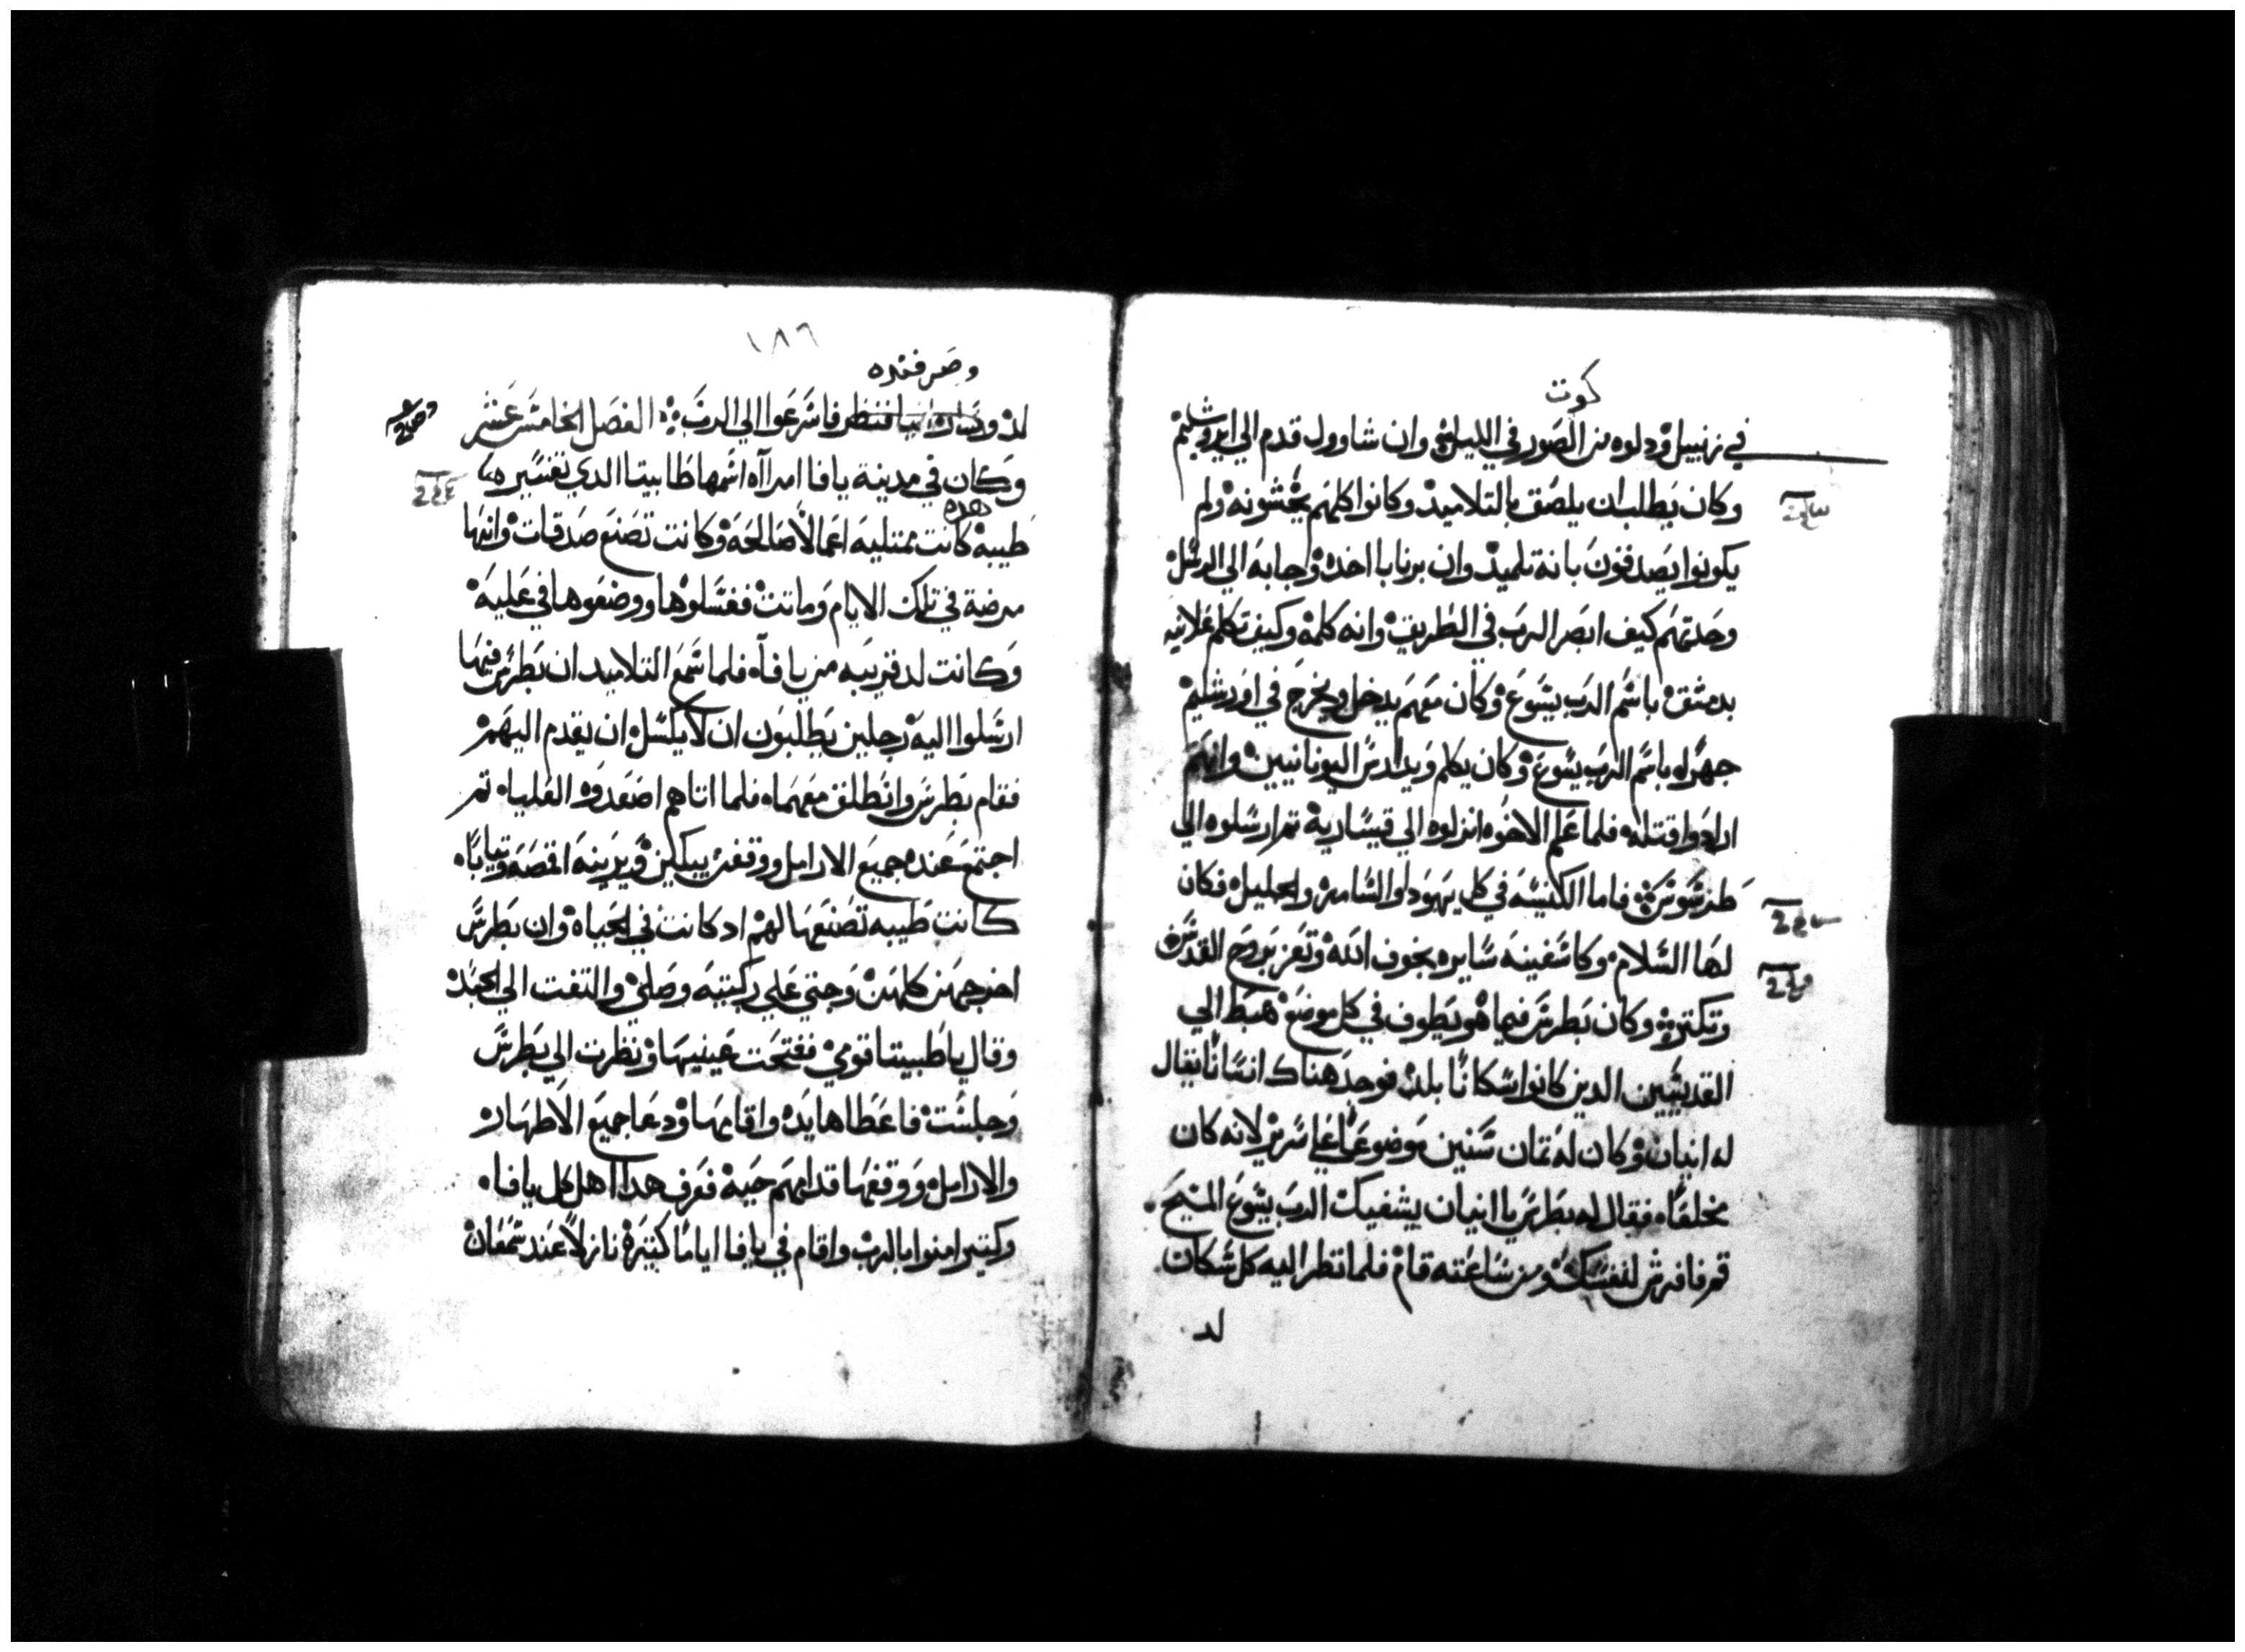 كوت
في زنبيل ودلوه من الصور في الليل وان شاوول قدم الي ايروشليم
وكان يطلب ان يلصق بالتلاميد وكانوا كلهم يخشونه ولم
يكونوا يصدقون بانه تلميد وان برنابا اخده وجابه الي الرسل
وحدتهم كيف ابصر الرب في الطريق وانه كلمه وكيف تكلم علانيه
بدمشق باسم الرب يسوع وكان معهم يدخل ويخرج في اورشليم
جهرا باسم الرب يسوع وكان يكلم ويدارس اليونانيين وانهم
ارادوا قتله فلما علم الاخوه انزلوه الي قيساريه تم ارسلوه الي
طرسوس فاما الكنيسه في كل يهودا والسامره والجليل فكان
لها السلام وكا شفينه سايره بخوف الله وتعزيه روح القدس
وتكتر وكان بطرس فيما هو يطوف في كل موضع هبط الي
القديسين الدين كانوا سكانا بلد فوجد هناك انسانا يقال
له انيان وكان له تمان سنين موضوعا علي سرير لانه كان
مخلقا فقال له بطرس يا انيان يشفيك الرب يسوع المسيح
قم فافرش لنفسك ومن ساعته قام فلما نظر اليه كل سكان
لد
١٨٦
وصرفنده
لد فاسرعوا الي الرب الفصل الخامس عشر
وكان في مدينة يافا امراه اسمها طابيتا الدي تفسيره
هده
طبيه كانت ممتليه اعمالا صالحه وكانت تصنع صدقات وانها
مرضة في تلك الايام وماتت فغسلوها ووضعوها في عليه
وكانت لد قريبه من يافا فلما سمع التلاميد ان بطرس فيها
ارسلوا اليه رجلين يطلبون ان لا يكسل ان يقدم اليهم
فقام بطرس وانطلق معهما فلما اتاهم اصعدوه العليا تم
اجتمع عنده جميع الارامل ووقفن يبكين ويرينه اقمصه وتيابا
كانت طبيه تصنعها لهم اد كانت في الحياه وان بطرس
اخرجهن كلهن وجتي علي ركبتيه وصلي والتفت الي الجسد
وقال يا طبيتا قومي ففتحت عينيها ونظرت الي بطرس
وجلست فاعطاها يده واقامها ودعا جميع الاطهار
والارامل ووقفها قدامهم حيه فعرف هدا اهل كل يافا
وكتير امنوا بالرب واقام في يافا اياما كتيره نازلا عند سمعان